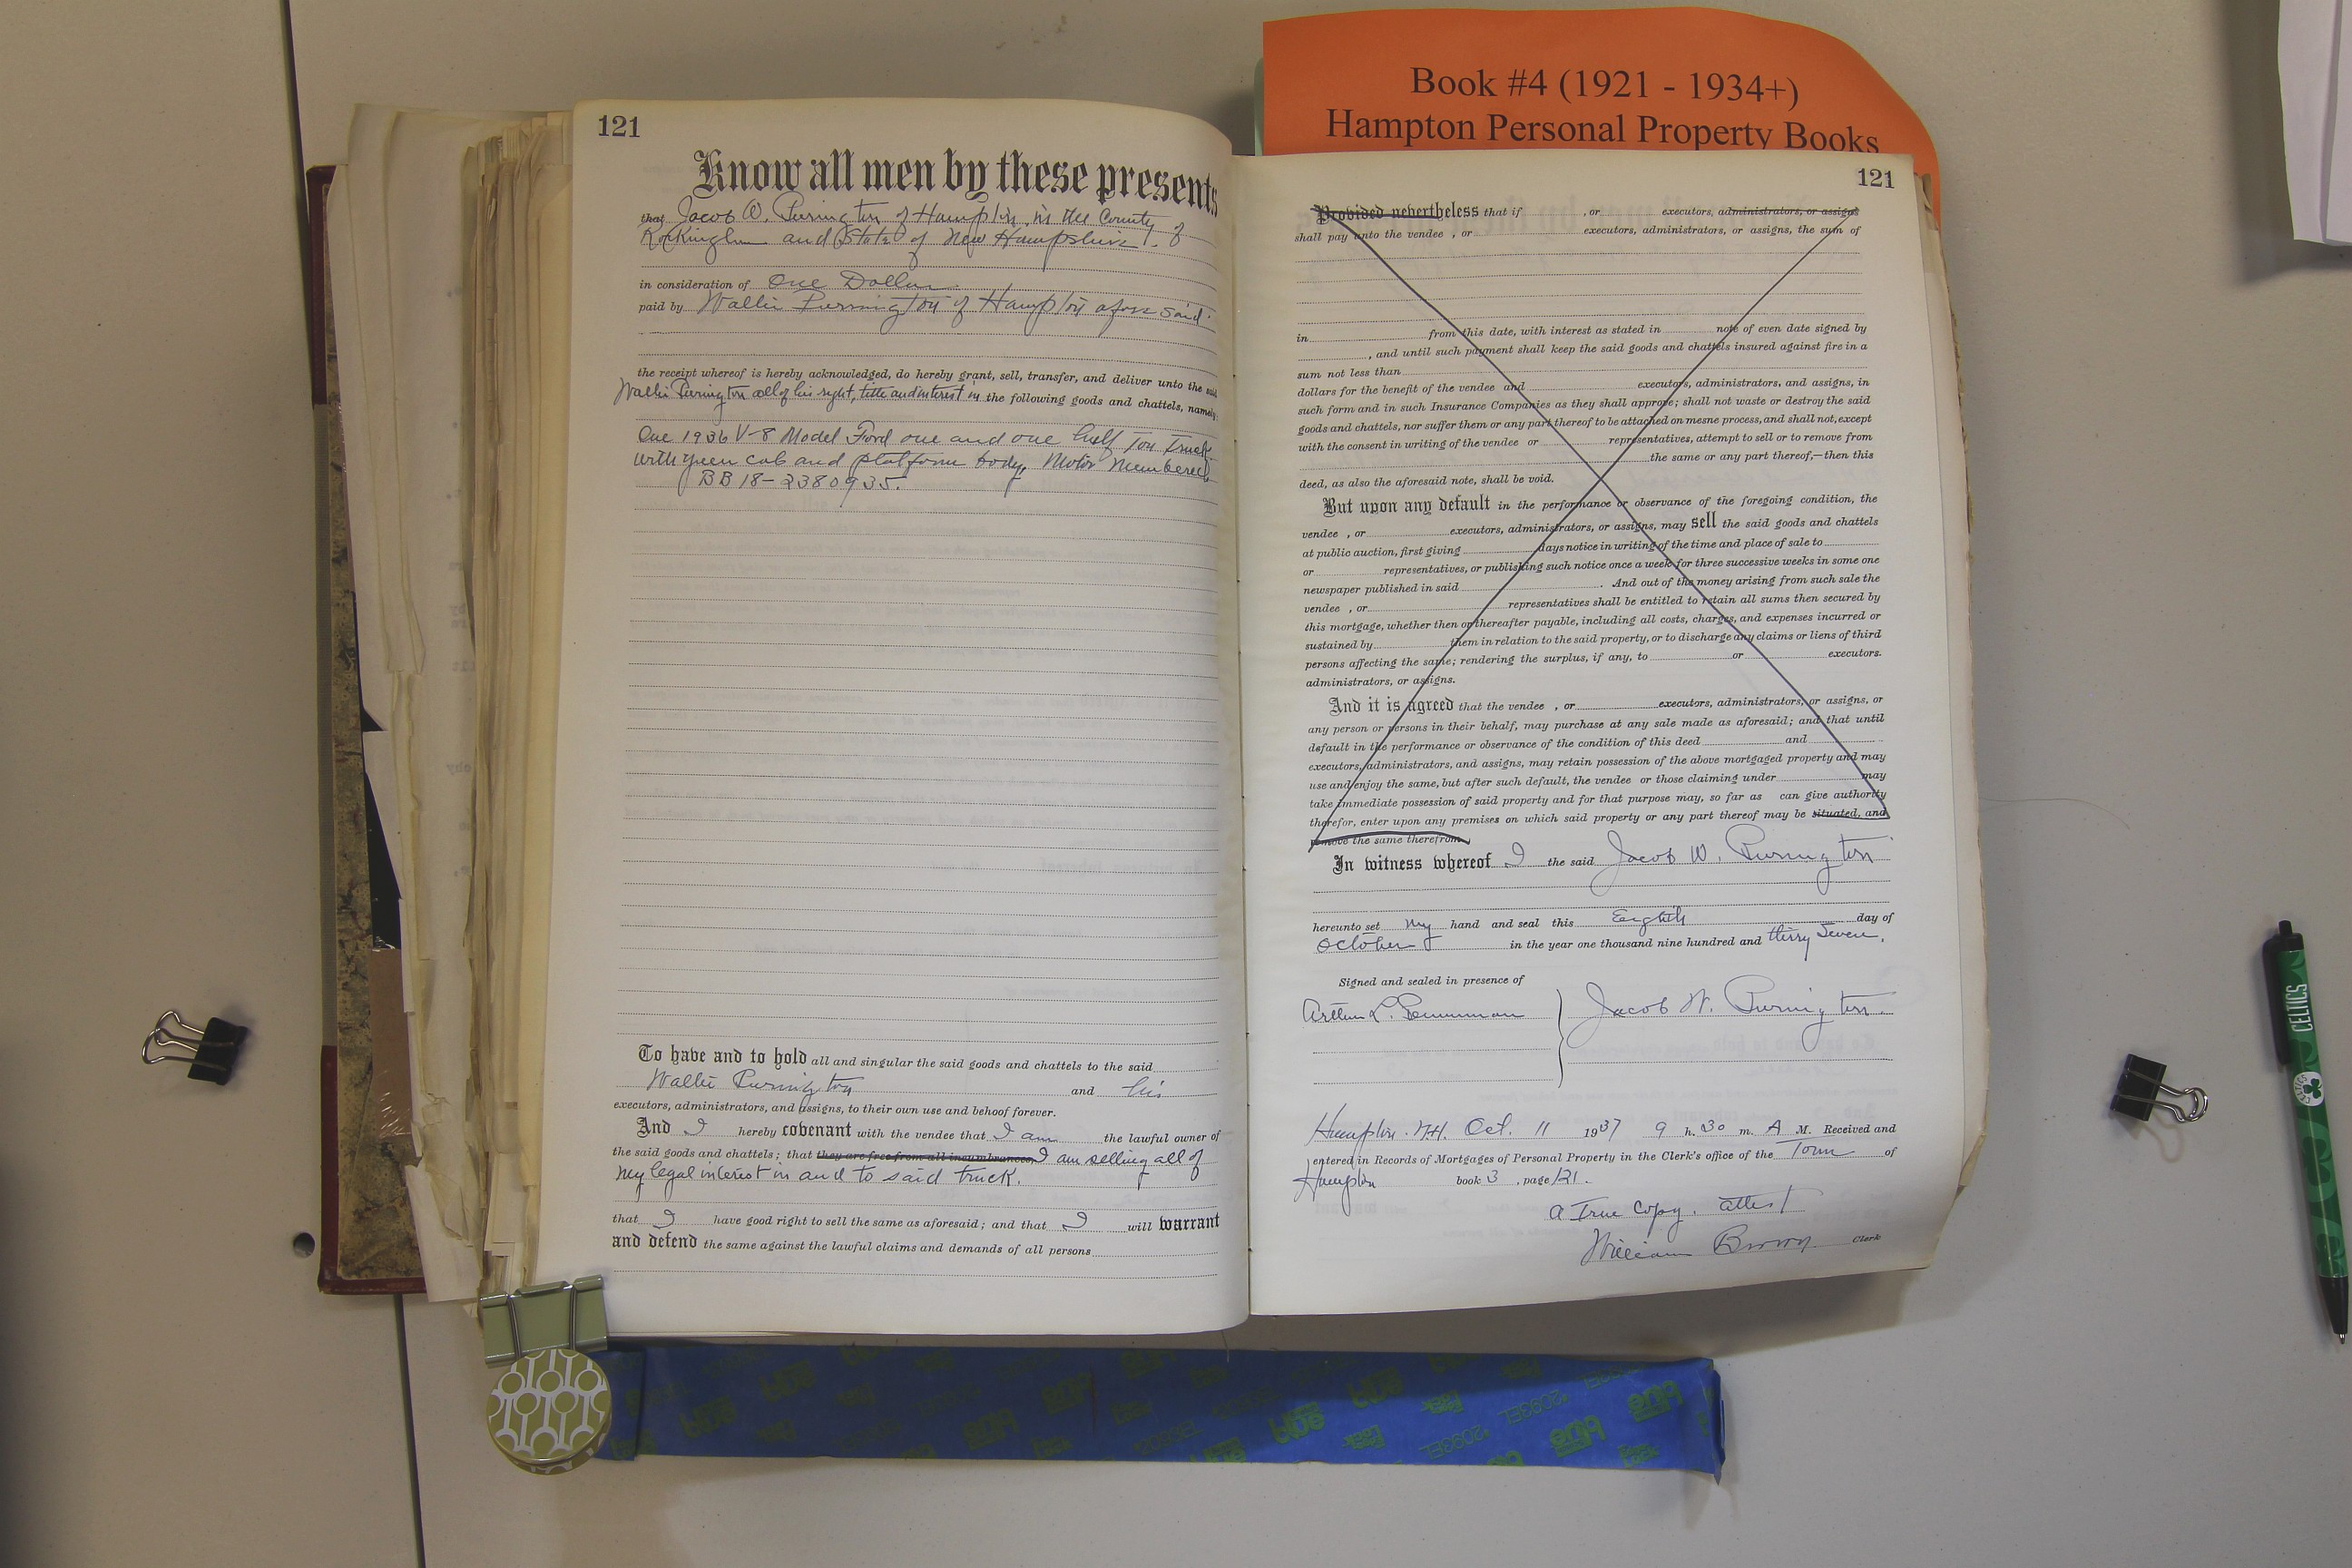 Book #4 (1921 - 1934+)
Hampton Personal Property Books
121
Know all men by these presents
that Jacob W. Purington of Hampton in the County of
Rockingham and State of New Hampshire.
in consideration of One Dollar
paid by Wallie Purington of Hampton aforesaid.
the receipt whereof is hereby acknowledged, do hereby grant, sell, transfer, and deliver unto the said
Wallie Purington all of his right, title and interest in the following goods and chattels, namely:
One 1936 V-8 Model Ford one and one half Ton Truck
with green cab and platform body, Motor Numbered
BB 18-2380935.
To have and to hold all and singular the said goods and chattels to the said
Wallie Purington and his
executors, administrators, and assigns, to their own use and behoof forever.
And I hereby covenant with the vendee that I am the lawful owner of
the said goods and chattels; that they are free from all incumbrances I am selling all of
my legal interest in and to said truck.
that I have good right to sell the same as aforesaid; and that I will warrant
and defend the same against the lawful claims and demands of all persons
121
Provided nevertheless that if , or executors, administrators, or assigns
shall pay unto the vendee , or executors, administrators, or assigns, the sum of
in from this date, with interest as stated in note of even date signed by
, and until such payment shall keep the said goods and chattels insured against fire in a
sum not less than
dollars for the benefit of the vendee and executors, administrators, and assigns, in
such form and in such Insurance Companies as they shall approve; shall not waste or destroy the said
goods and chattels, nor suffer them or any part thereof to be attached on mesne process, and shall not, except
with the consent in writing of the vendee or representatives, attempt to sell or to remove from
the same or any part thereof,—then this
deed, as also the aforesaid note, shall be void.
But upon any default in the performance or observance of the foregoing condition, the
vendee , or executors, administrators, or assigns, may sell the said goods and chattels
at public auction, first giving days notice in writing of the time and place of sale to
or representatives, or publishing such notice once a week for three successive weeks in some one
newspaper published in said . And out of the money arising from such sale the
vendee , or representatives shall be entitled to retain all sums then secured by
this mortgage, whether then or thereafter payable, including all costs, charges, and expenses incurred or
sustained by them in relation to the said property, or to discharge any claims or liens of third
persons affecting the same; rendering the surplus, if any, to or executors.
administrators, or assigns.
And it is agreed that the vendee , or executors, administrators, or assigns, or
any person or persons in their behalf, may purchase at any sale made as aforesaid; and that until
default in the performance or observance of the condition of this deed and
executors, administrators, and assigns, may retain possession of the above mortgaged property and may
use and enjoy the same, but after such default, the vendee or those claiming under may
take immediate possession of said property and for that purpose may, so far as can give authority
therefor, enter upon any premises on which said property or any part thereof may be situated, and
remove the same therefrom.
In witness whereof I the said Jacob W. Purington
hereunto set my hand and seal this Eighth day of
October in the year one thousand nine hundred and thirty seven.
Signed and sealed in presence of
Arthur L. Jacob W. Purington.
Hampton. N.H. Oct. 11 1937 9 h. 30 m. A M. Received and
entered in Records of Mortgages of Personal Property in the Clerk's office of the Town of
Hampton book 3 , page 121.
A True Copy. attest
William Brown Clerk
CELTICS